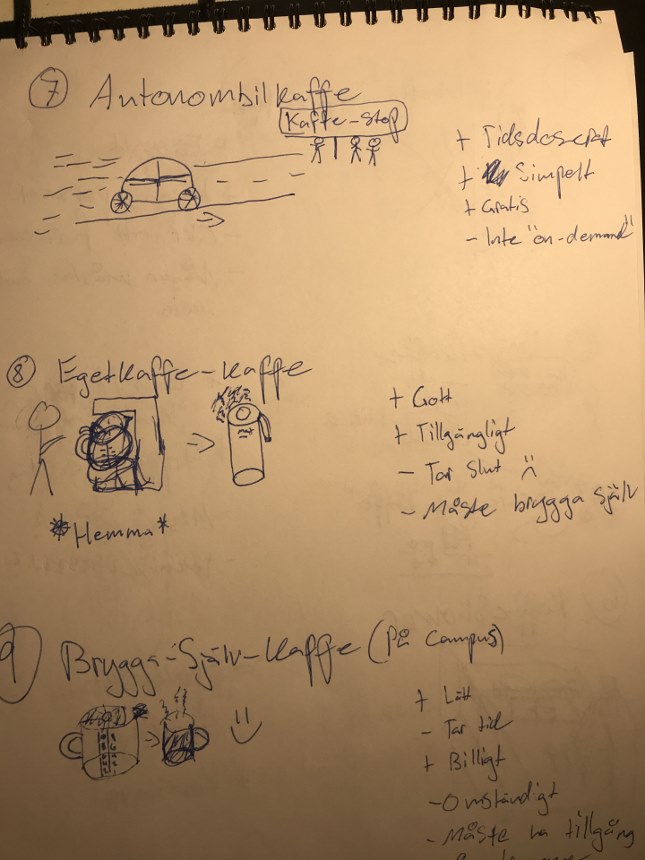 7 Autonombilkaffe
Kaffe-stop
+ Tidsdoserat
+ Simpelt
+ Gratis
- Inte "on-demand"
8 Egetkaffe-kaffe
+ Gott
+ Tillgängligt
- Tar slut :(
- Måste brygga själv
*Hemma*
9 Brygga-Själv-Kaffe (På Campus)
+ Lätt
- Tar tid
+ Billigt
- Omständigt
- Måste ha tillgång